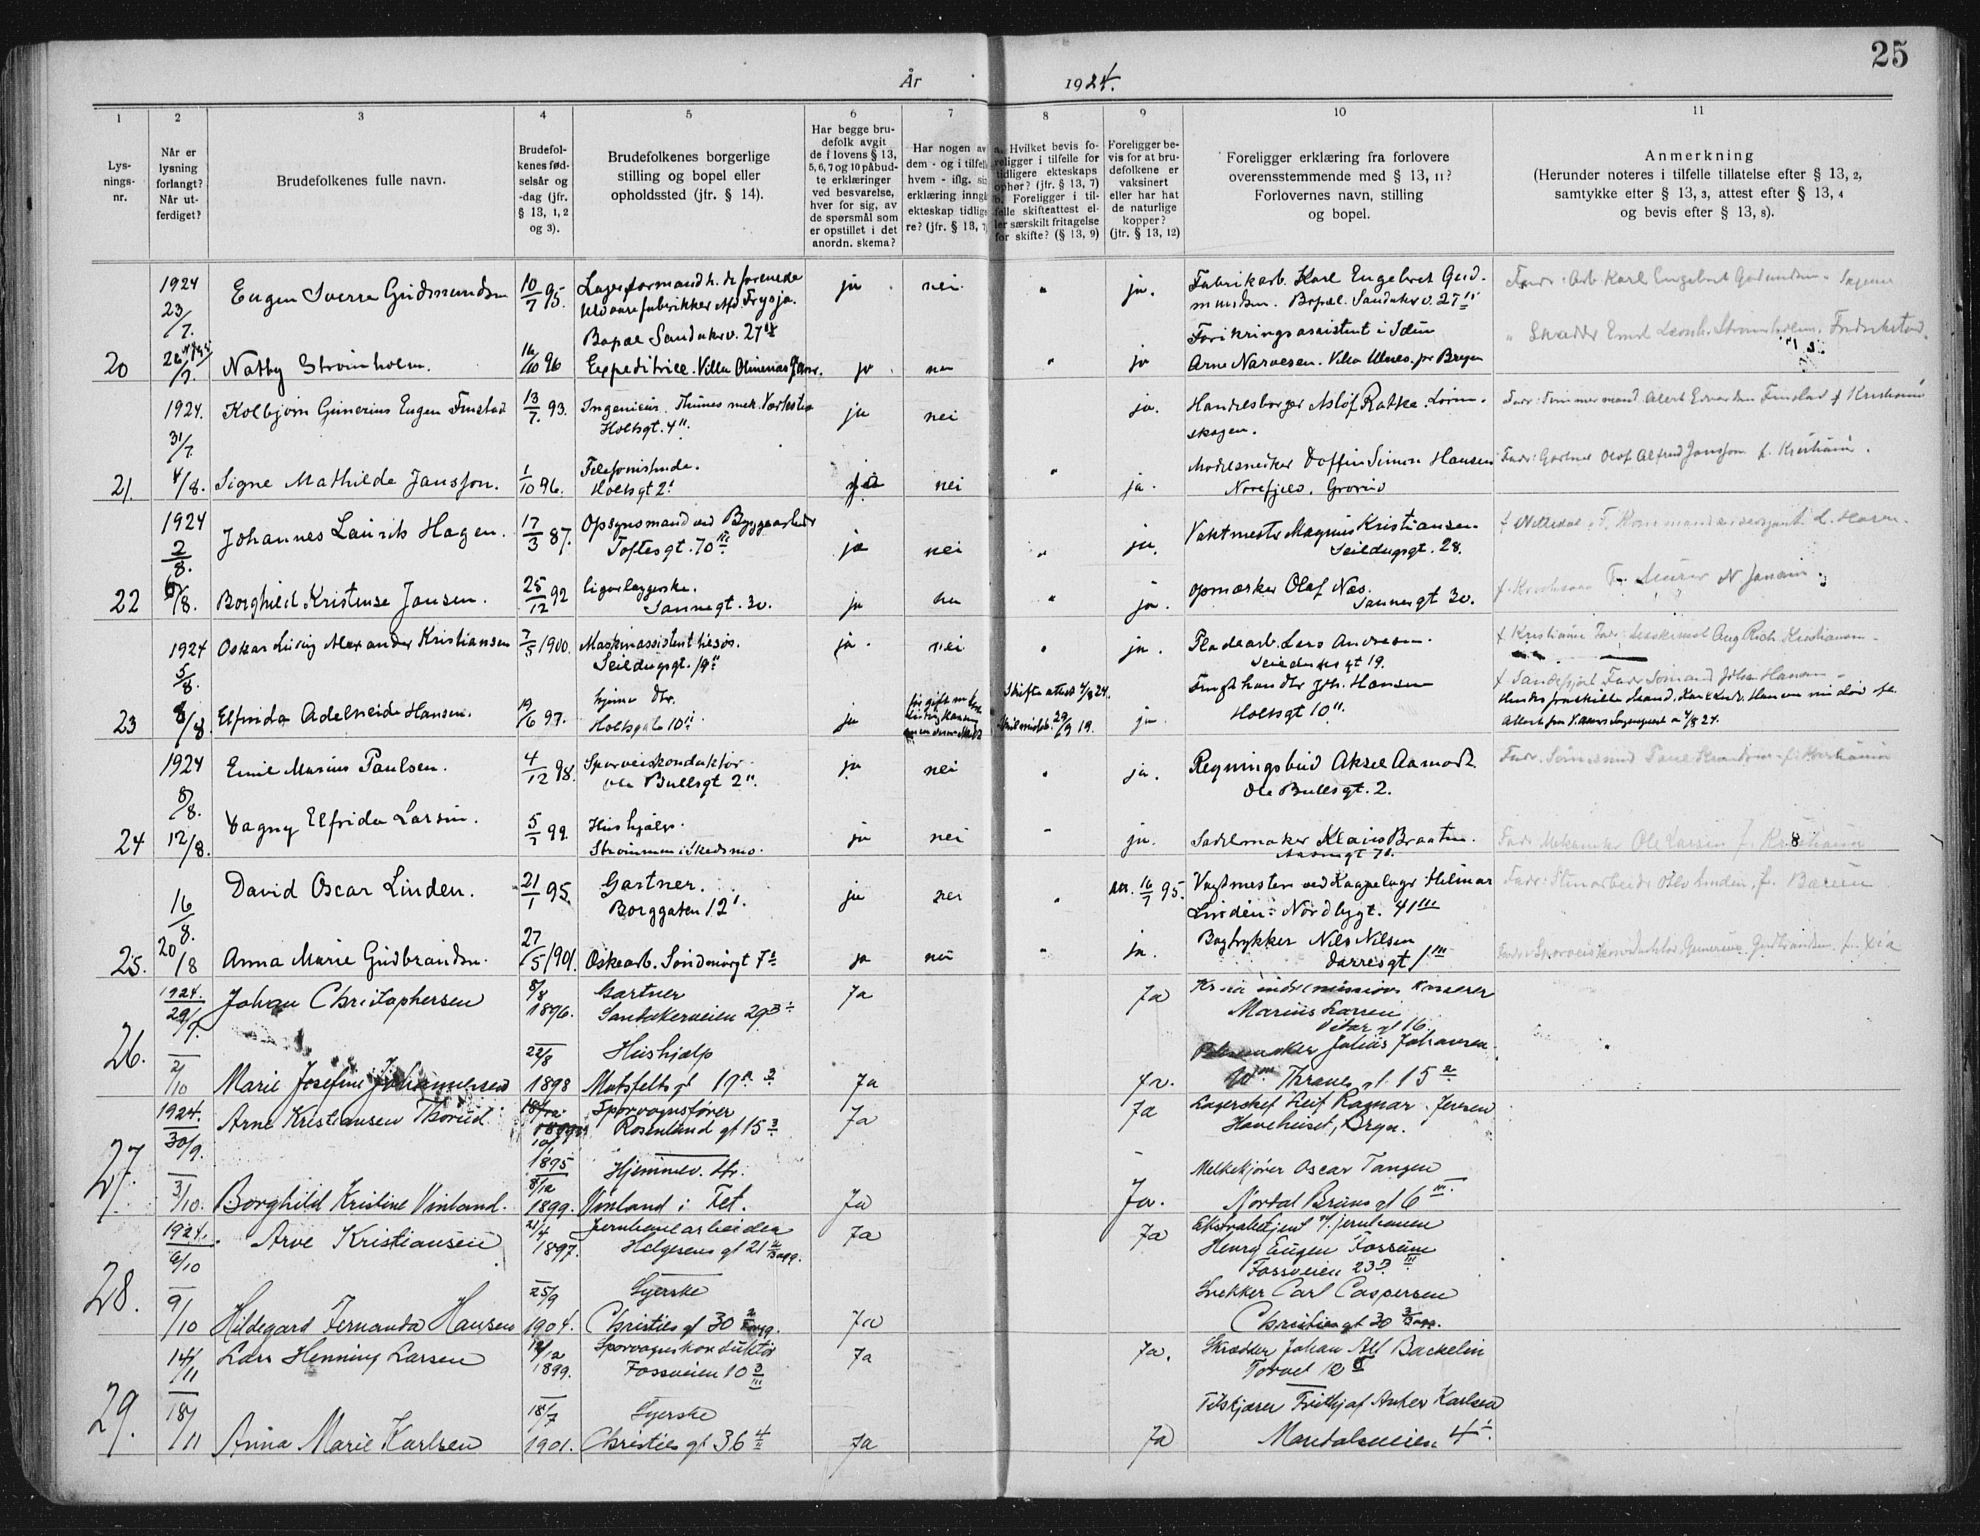 25
År 1924.
1 2 3 4 5 6 7 8 9 10 11
Lys-
nings-
nr.
Når er
lysning
forlangt?
Når ut-
ferdiget?
Brudefolkenes fulle navn.
Brudefol-
kenes fød-
selsår og
-dag (jfr.
§ 13, 1, 2
og 3).
Brudefolkenes borgerlige
stilling og bopel eller
opholdssted (jfr. § 14).
Har begge bru-
defolk avgit
de i lovens § 13,
5, 6, 7 og 10 påbud-
te erklæringer
ved besvarelse,
hver for sig, av
de spørsmål som
er opstillet i det
anordn. skema?
Har nogen av
dem - og i tilfelle
hvem - iflg. sin
erklæring inngå
ekteskap tidlige
re? (jfr. § 13, 7
a. Hvilket bevis fo-
religger i tilfelle for
tidligere ekteskaps
ophør? (jfr. § 13, 7)
b. Foreligger i til-
felle skifteattest el-
ler særskilt fritagelse
for skifte? (§ 13, 9)
Foreligger be-
vis for at bru-
defolkene er
vaksinert
eller har hat
de naturlige
kopper?
(jfr. § 13, 12)
Foreligger erklæring fra forlovere
overensstemmende med § 13, 11?
Forlovernes navn, stilling
og bopel.
Anmerkning
(Herunder noteres i tilfelle tillatelse efter § 13, 2,
samtykke efter § 13, 3, attest efter § 13, 4
og bevis efter § 13, 8).
1924
23/7.
Eugen Sverre Gudmundsen
10/7 95.
Lagerformand h. de forenede
Uldvarefabrikker Afd Frysja.
Bopæl Sandakerv. 27 II
ja.
nei.
"
ja.
Fabrikarb. Karl Engebret Gud-
mundsen. Bopæl. Sandakerv. 27 II
Fadr: Arb Karl Engebret Gudmundsen
20
Natby Strømholm.
16/10 96
Expeditrice. Villa Olimenas
ja.
nei
"
ja
Forsikringsassistent i Idun
Arne Narvesen. Villa Ulnes, pr Bryn
1924.
31/7.
Kolbjørn Gunerius Eugen Finstad
13/7. 93.
Ingeniør. Thunes mek. Værksted
Holtsgt. 4 II.
ja
nei
ja.
Handelsborger Asløf Ratke. Lørn-
skogen.
21.
4/8.
Signe Mathilde Jansson.
1/10 96.
Telefonistinde.
Holtsgt 2 I
ja
nei
"
ja.
Modelsnedker Doffin Simon Hansen
Norefjeld. Grorud
Fadr: Gartner Olof Alfred Jansson f. Kristiania.
1924
2/8.
Johannes Laurits Hagen.
17/3 87.
Opsynsmand ved Byggearbeide
Toftesgt. 70 III
ja
nei
"
ja.
Vaktmester Magnus Kristiansen
Seildugsgt. 28.
22
6/8.
Borghild Kristense Jansen.
25/12 92
Cigarlæggerske.
Sannergt. 30.
ja
nei
"
ja.
Opmerker Olaf Næs.
Sannergt 30.
1924
5/8.
Oskar Ludvig Alexander Kristiansen
7/5 1900.
Maskinassistent tilsøs.
Seildugsgt. 19 II
ja.
nei
"
ja.
Pladearb. Lars Andresen.
Seildugsgt 19.
f Kristiania Fadr: Aug Rich Kristiansen
23
8/8
Elfrida Adelheide Hansen.
19/6 97.
hjeme dtr.
Holtsgate 10 II
ja
Skifteattest 4/8 24.
Skilsmisseb. 29/9 19.
ja.
Frugthandler Joh. Hansen
Holtsgt 10 II.
f Sandefjord Fadr Sømand Johan Hansen
1924
8/8.
Emil Marius Paulsen.
4/12 98.
Sporveiskonduktør.
Ole Bullsgt 2 II.
ja
nei
"
ja.
Regningsbud Aksel Aamodt
Ole Bullsgt. 2.
24
12/8.
Dagny Elfrida Larsen.
5/7 99.
Hushjælp.
Strømmen i Skedsmo.
ja
nei
"
ja.
Sadelmaker Klaus Braaten.
Fadr Mekaniker Ole Larsen f. Kristiania
16/8.
David Oscar Linden.
21/1 95.
Gartner.
Borggaten 12 I.
ja
nei
"
16/7 95.
Vagtmester ved Kappelager Hilmar
Lindén: Nordbygt. 41 III
Fadr: Stenarbeider Oskar Linden, f. Bærum
25.
20/8
Anna Marie Gudbrandsen.
27/5 1901.
Eskearb. Søndmørgt 7
ja
nei
"
ja.
Bogtrykker Nils Nilsen
Darresgt 1 III
Fadr: Sporveiskonduktør Gunerius Gudbrandsen. f. Kr.a
1924.
29/9.
Johan Christophersen
8/8
1896.
Gartner
Sandakerveien 29 B I
Ja
Ja
Kr.ia indremissions kasserer
Marius Larsen
Vibes gt 16.
26.
2/10
Marie Josefine Johannesen
22/8
1898
Hushjælp
Motzfeldts gt 19 A 3
Ja
Ja.
Julius Johansen.
Thranes gt. 15 2
1924.
30/9.
Arne Kristiansen Thorud
10/1
1895
Sporvognsfører
Rosenlund gt 15 3
Ja
Ja
Lagerchef Leif Ragnar Jensen
Havehuset, Bryn.
27.
3/10.
Borghild Kristine Vinland.
8/12
1899.
Hjemmev. dtr.
Vinland i Fet.
Ja
Ja.
Melkekjører Oscar Tangen
Nordal Bruns gt 6 III.
1924.
6/10
Arve Kristiansen
21/4
1897.
Jernbanearbeider
Helgesens gt 21 II opg.
Ja
Ja
Ekstrabetjent v/ jernbanen
Henry Eugen Fossum
Fossveien 23 B III
28.
9/10
Hildegard Fernanda Hansen
25/9
1904.
Syerske
Christies gt 30 2 opg.
Ja
Snekker Carl Caspersen
Christies gt 30 2 opg.
14/11
Lars Henning Larsen
12/12
1899.
Sporvognskonduktør
Fossveien 10 3 III
Ja
Ja.
Skrædder Johan Alf Backelin
Torvet 12 II
29.
18/11
Anna Marie Karlsen
18/7
1901.
Syerske
Christies gt 36 4 II
Ja
Ja
Tilskjærer Frithjof Anker Karlsen
Maridalsveien 4 I.